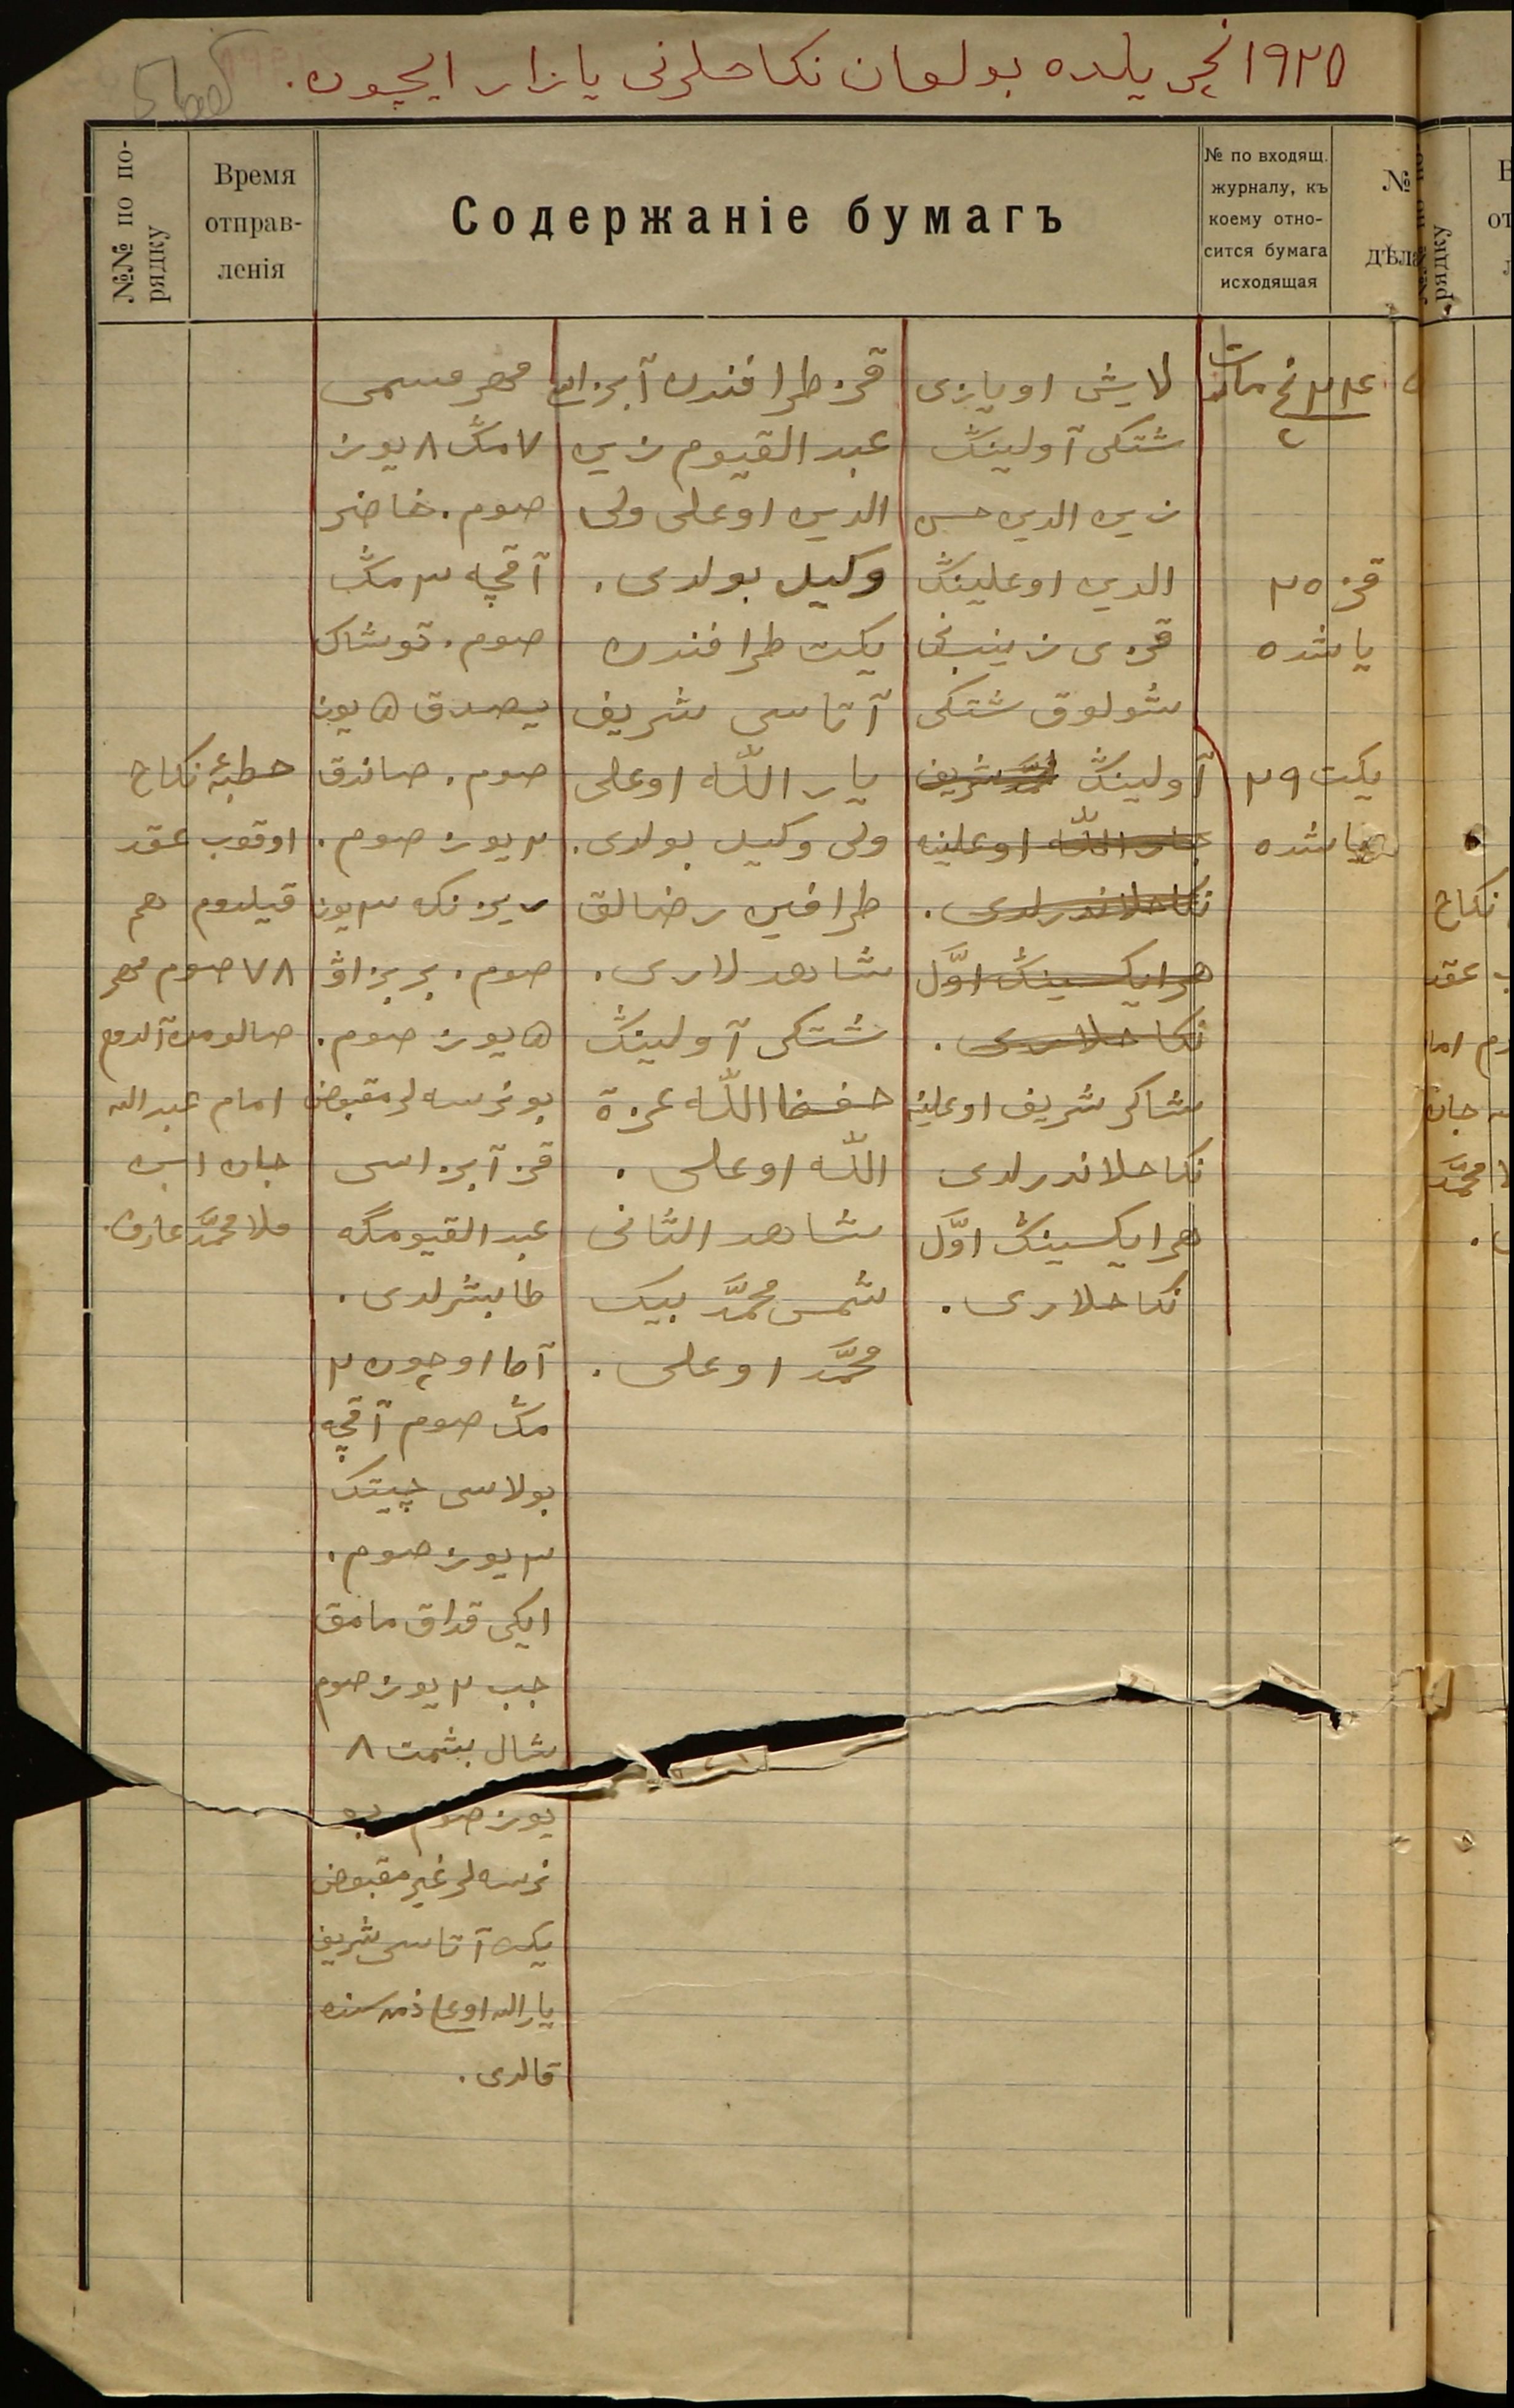 ١٩٢٥ نچی یلده بولعان نکاحلرنی یازار ایچون.
№№ по порядку
Время отправленія
Содержаніе бумагъ
№ по входящ. журналу, къ коему относится бумага исходящая
№ дѣла
٢٤ نچی مارت
٢
قز ٢٥
یاشده
یکت ٢٩
یاشده
لایش اویازی
شتکی آولینڭ
زین الدین حسن
الدین اوعلینڭ
قزی زینب نی
شولوق شتکی
آولینڭ محمّد شریف
یار اللّه اوعلینه
نکاحلاندرلدی.
هر ایکسینڭ اوّل
نکاحلاری.
شاکر شریف اوعلینه
نکاحلاندرلدی
هر ایکسینڭ اوّل
نکاحلاری.
قز طرافندن آبزاسی
عبد القیوم زین
الدین اوعلی ولی
وکیل بولدی.
یکت طرافندن
آتاسی شریف
یار اللّه اوعلی
ولی وکیل بولدی.
طرافین رضالق
شاهدلاری.
شتکی آولینڭ
حفظ اللّه عزة
اللّه اوعلی.
شاهد الثانی
شمس محمّد بیک
محمّد اوعلی.
مهر مسمی
٧ مڭ ٨ یوز
صوم. خاضر
آقچه ٣ مڭ
صوم. توشاک
یصدق ٥ یوز
صوم. صاندق
٢ یوز صوم.
بریزنکه ٣ یوز
صوم. بربزاو
٥ یوز صوم.
بو نرسه لر مقبوض
قز آبزاسی
عبد القیومگه
طابشرلدی.
آطا اوچون ٢
مڭ صوم آقچه
بولاسی چیتک
٣ یوز صوم.
ایکی قداق مامق
جب ٢ یوز صوم
شال بشمت ٨
یوز صوم بو
نرسه لر غیر مقبوض
یکت آتاسی شریف
یار الله اوعلی ذمه سنده
قالدی.
خطبۀ نکاح
اوقوب عقد
قیلدوم هم
٧٨ صوم مهر
صالومن آلدوم
امام عبد الله
جان ابن
ملا محمّد عارف.